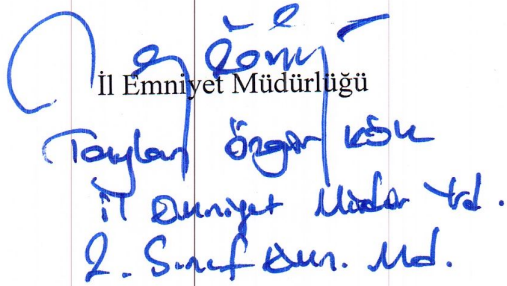 İl Emniyet Müdürlüğü
Taylan Özgür KÖK
İl Emniyet Müdür Yrd.
2. Sınıf Emn. Md.